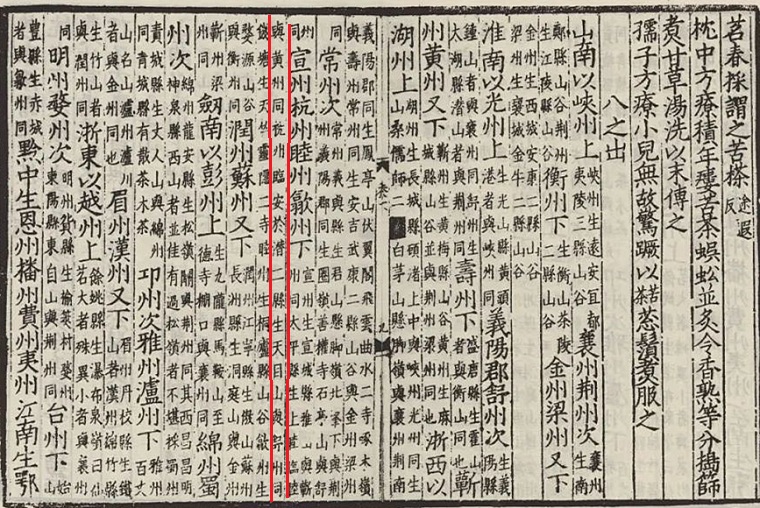 茗春採謂之苦𣘻途遐反
枕中方療積年瘻苦茶蜈蚣並炙令香熟等分擣篩
煑甘草湯洗以末傅之
孺子方療小兒無故驚蹶以苦茶葱鬚煑服之
八之出
山南以峽州上峽州生遠安宜都夷陵三縣山谷襄州荆州次襄州生南
鄭縣山谷荆州生江陵縣山谷衡州下生衡山茶陵二縣山谷金州梁州又下
金州生西城安康二縣山谷梁州生襄城金牛二縣山谷
淮南以光州上生光山縣黃頭港者與峽州同義陽郡舒州次生義陽縣
鍾山者與襄州同舒州生太湖潛山者與荆州同壽州下盛唐縣生霍山者與衡山同也蘄
州黃州又下蘄州生黃梅縣山谷黃州生麻城縣山谷並與荆州梁州同也浙西以
湖州上湖州生長城縣顧渚上中與峽州光州同生山桑儒師二白茅山縣脚嶺與襄州荆南
義陽郡同生鳳亭山伏翼閣飛雲曲水二寺啄木嶺與壽州常州同生安吉武康二縣山谷與金州梁州
同常州次常州義興縣生君山懸脚嶺北峯下與荆州義陽郡同生圈嶺善權寺石亭山與舒州
同宣州杭州睦州歙州下宣州生宣城縣雅山與蘄州同太平縣生上睦臨睦
與黃州同杭州臨安於潛二縣生天目山與舒州同
錢塘生天竺靈隱二寺睦州生桐廬縣山谷歙州生
婺源山谷與衡州同潤州蘇州又下潤州江寧縣生傲山蘇州長洲縣生洞庭山與金州
蘄州梁州同劔南以彭州上生九隴縣馬鞍山至德寺棚口與襄州同綿州蜀
州次綿州龍安縣生松嶺關與荆州同其西昌昌明神泉縣西山者並佳有過松嶺者不堪採蜀州
青城縣生丈人山與綿州同青城縣有散茶木茶邛州次雅州瀘州下雅州百丈
山名山瀘州瀘川者與金州同也眉州漢州又下眉州丹校縣生鐵山者漢州綿竹縣
生竹山者與潤州同浙東以越州上餘姚縣生瀑布泉嶺曰仙茗大者殊異小者與襄州
同明州婺州次明州貨縣生榆筴村婺州東陽縣東自山與荆州同台州下始
豐縣生赤城者與歙州同黔中生恩州播州費州夷州江南生鄂